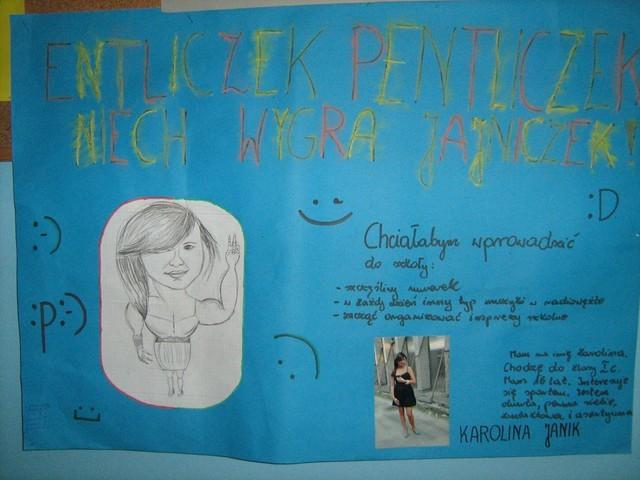 ENTLICZEK PENTLICZEK
NIECH WYGRA JAJNICZEK!
:-)
:D
Chciałabym wprowadzić
do szkoły:
- szczęśliwy numerek
- w każdy dzień inny typ muzyki w radiowęźle
- zacząć organizować imprezy szkolne
:p :-)
Mam na imię Karolina.
Chodzę do klasy I c.
Mam 16 lat. Interesuje
się sportem. Jestem
otwarta, pewna siebie,
i asertywna
KAROLINA JANIK